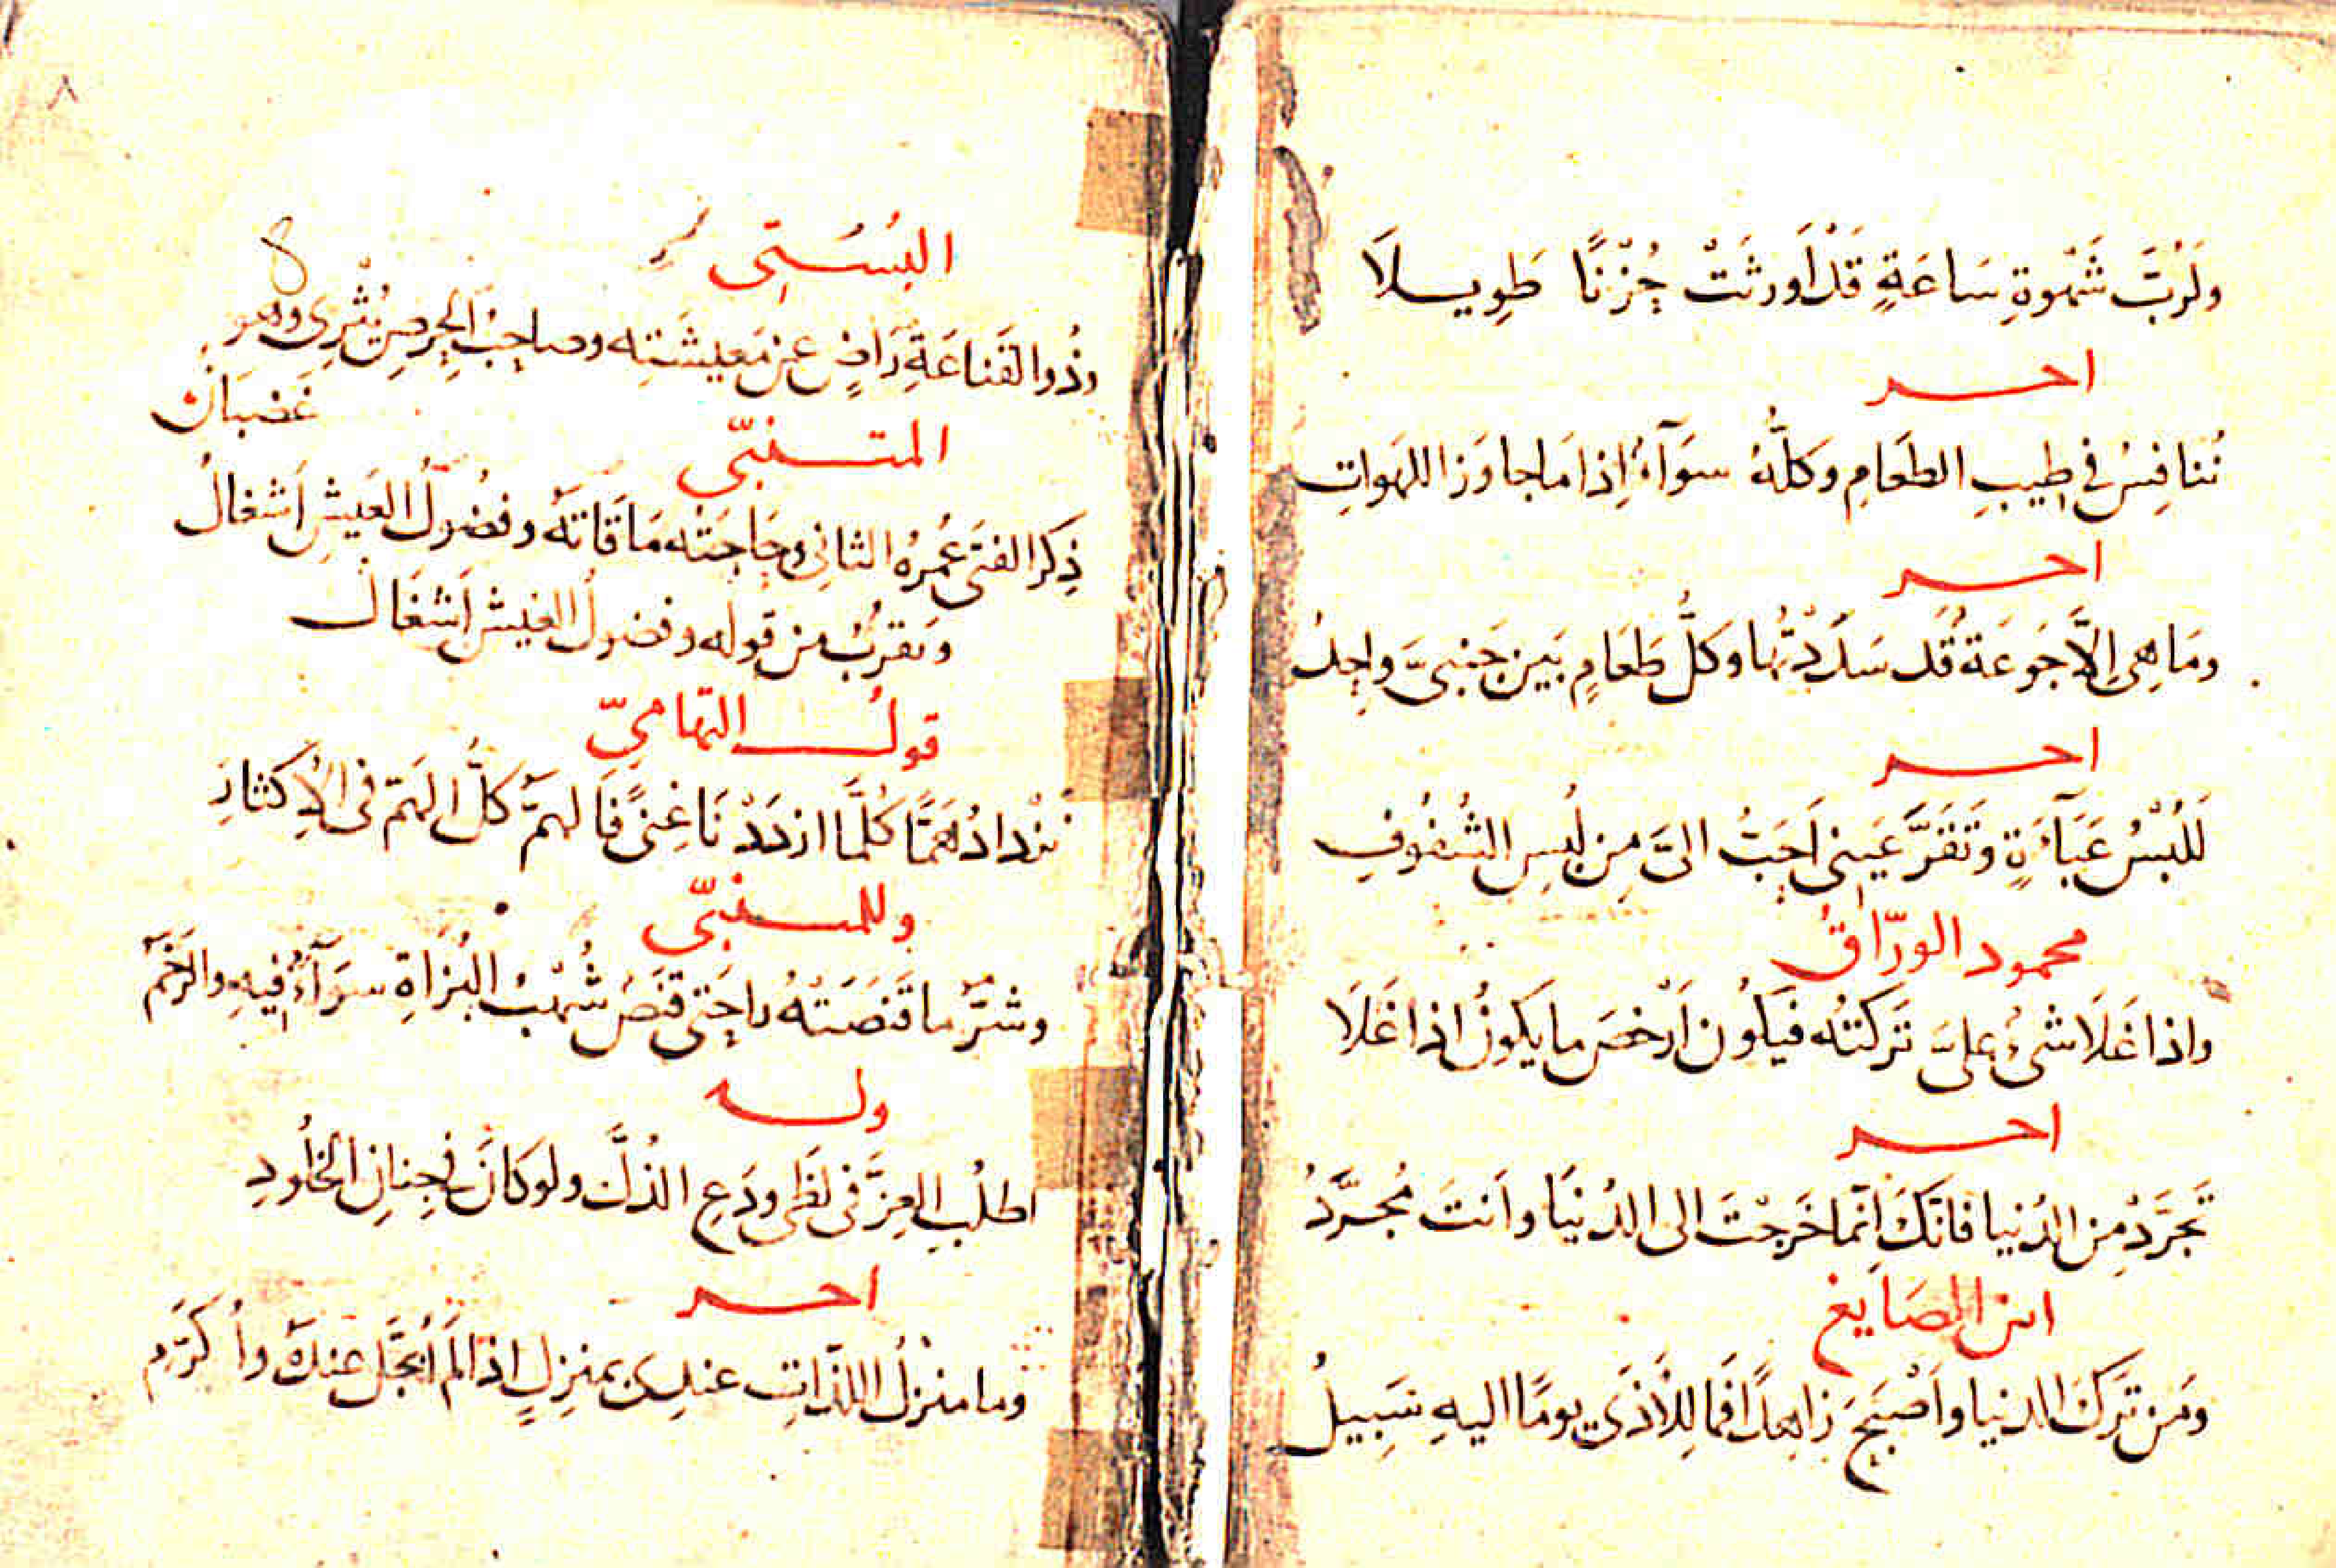 ولَرُبَّ شَهْوةِ سَاعَةٍ قَدْ اَورثَتْ حُزْنًا طَوِيلَا
اخر
نُنَافِسُ فى طِيبِ الطعَامِ وكلُّهُ سوَآءٌ اِذا مَا جاوَزَ اللهَواتِ
اخر
ومَا هِىَ اِلَّا جَوعَةٌ قَد سَدَدْتُّها وكلُّ طَعَامٍ بَين جَنبىَّ واحِدُ
اخر
لَلُبْسُ عَبَآءَةٍ وَتَقَرَّ عَينى اَحَبُّ الىَّ مِن لُبسِ الشُفُوفِ
محمود الورّاقُ
واذا غَلَا شىءٌ علىَّ تَركتُه فيَكُون اَرْخصَ ما يَكونُ اذا غَلَا
اخر
تَجرَّدْ مِن الدُنيا فانَّكَ اِنّما خَرجْتَ الى الدُنيَا واَنتَ مُجرَّدُ
ابن الصَايغ
ومَن تَركَ الدنيا واَصْبَحَ زاهِدًا فَما لِلاَذَى يومًا اليهِ سَبِيلُ
٨
البُسْتِى
وذُوا القَناعَةِ رَاضٍ عن مَعِيشَتِه وصاحِبُ الحِرصِ يُثْرِى وهو
غَضبَانُ
المتنبّى
ذِكرُ الفتَى عُمرُهُ الثانِى وحَاجَتُه مَا قَاتَهُ وفضُولُ العَيشِ اَشغالُ
وَيقرُبُ من قوله وفضولُ العَيشِ اَشْغَال
قولُ التهامىّ
نزْدادُ هَمًّا كُلَّما ازدَدْنَا غِنىً فَالهمُّ كلُّ الهَمّ فى الاِكثارِ
وللمتنبّى
وشرُّ ما قَنَصَتْهُ راحَتى قنَصٌ شُهْبُ البُزَاةِ سوَآءٌ فِيهِ والرَخَمُ
وله
اطلُبِ العِزَّ فى لظَى ودَعِ الذُلَّ ولو كانَ فى جِنانِ الخلُودِ
اخر
وما منزلُ اللذّاتِ عندى بمنزِلٍ اذا لم اُبَجَّل عِندَهُ واُكرَّمِ